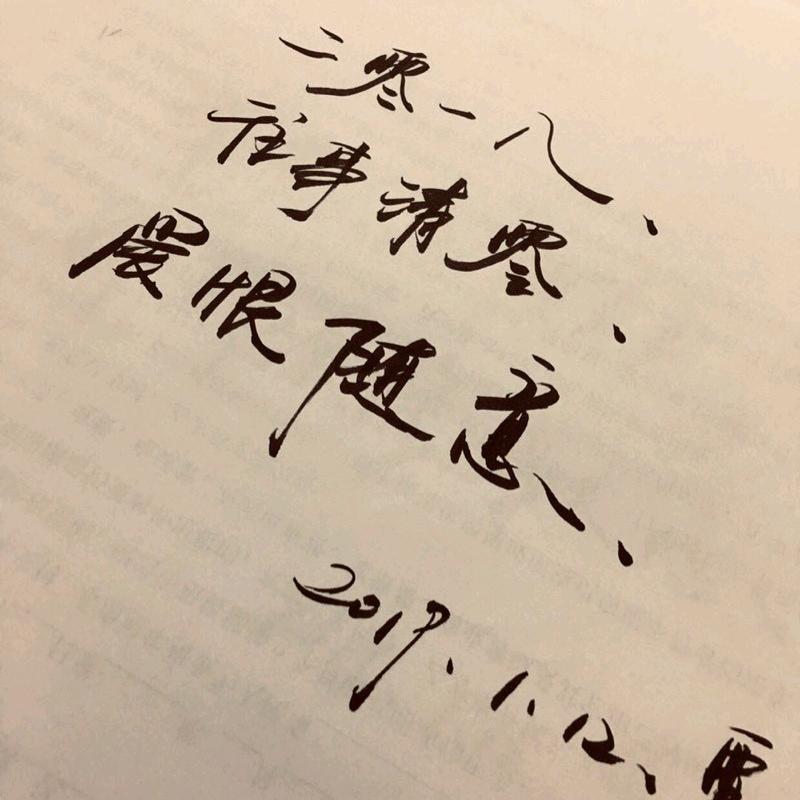 二零一八、
往事清零、
爱恨随意、
2019.1.12、